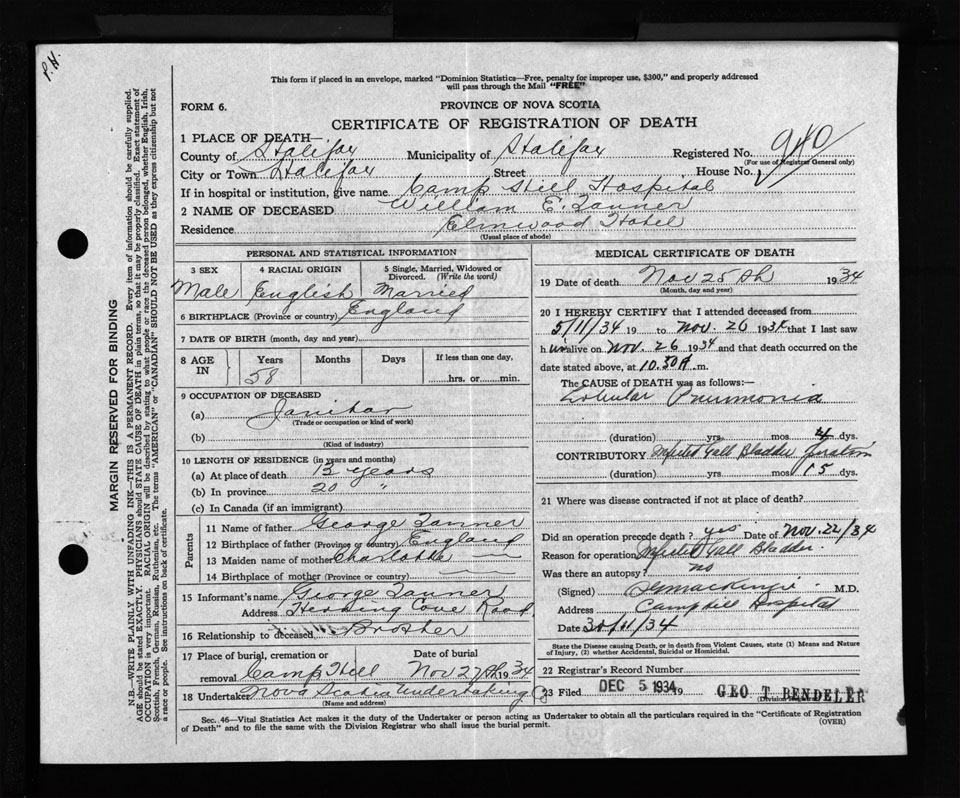 P.H.
This form if placed in an envelope, marked "Dominion Statistics—Free, penalty for improper use, $300," and properly addressed
will pass through the Mail "FREE"
FORM 6.
PROVINCE OF NOVA SCOTIA
CERTIFICATE OF REGISTRATION OF DEATH
1 PLACE OF DEATH—
County of Halifax Municipality of Halifax Registered No. 940
(For use of Registrar General only)
City or Town Halifax Street House No.
If in hospital or institution, give name Camp Hill Hospital
2 NAME OF DECEASED William E. Tanner
Residence Elmwood Hotel
(Usual place of abode)
PERSONAL AND STATISTICAL INFORMATION
3 SEX 4 RACIAL ORIGIN 5 Single, Married, Widowed or Divorced. (Write the word)
Male English Married
6 BIRTHPLACE (Province or country) England
7 DATE OF BIRTH (month, day and year)
8 AGE IN Years Months Days If less than one day,
58 hrs. or min.
9 OCCUPATION OF DECEASED
(a) Janitor
(Trade or occupation or kind of work)
(b)
(Kind of industry)
10 LENGTH OF RESIDENCE (in years and months)
(a) At place of death 13 years
(b) In province 20 "
(c) In Canada (if an immigrant)
Parents
11 Name of father George Tanner
12 Birthplace of father (Province or country) England
13 Maiden name of mother Charlotte
14 Birthplace of mother (Province or country)
15 Informant's name George Tanner
Address Herring Cove Road
16 Relationship to deceased Brother
17 Place of burial, cremation or removal Date of burial
Camp Hill Nov 27th 1934
18 Undertaker Nova Scotia Undertaking Co
(Name and address)
MEDICAL CERTIFICATE OF DEATH
19 Date of death Nov 25th 1934
(Month, day and year)
20 I HEREBY CERTIFY that I attended deceased from
5/11/34 19 to Nov. 26 1934 that I last saw
him alive on Nov. 26 1934 and that death occurred on the
date stated above, at 10.30 A.m.
The CAUSE OF DEATH was as follows:—
Lobular Pneumonia
(duration) yrs. mos. 4 dys.
CONTRIBUTORY Infected Gall Bladder
(duration) yrs. mos. 15 dys.
21 Where was disease contracted if not at place of death?
Did an operation precede death? yes Date of Nov. 22/34
Reason for operation Infected Gall Bladder.
Was there an autopsy? no
(Signed) MacKenzie M.D.
Address Camp Hill Hospital
Date 30/11/34
State the Disease causing Death, or in death from Violent Causes, state (1) Means and Nature
of Injury, (2) whether Accidental, Suicidal or Homicidal.
22 Registrar's Record Number
23 Filed DEC 5 1934 19 GEO T. BENDELER
(Division Registrar)
Sec. 46—Vital Statistics Act makes it the duty of the Undertaker or person acting as Undertaker to obtain all the particulars required in the "Certificate of Registration
of Death" and to file the same with the Division Registrar who shall issue the burial permit. (OVER)
MARGIN RESERVED FOR BINDING
N.B.—WRITE PLAINLY WITH UNFADING INK—THIS IS A PERMANENT RECORD. Every item of information should be carefully supplied.
AGE should be stated EXACTLY. PHYSICIANS should STATE CAUSE OF DEATH in plain terms, so that it may be properly classified. Exact statement of
OCCUPATION is very important. RACIAL ORIGIN will be described by stating to what people or race the deceased person belonged, whether English, Irish,
Scottish, French, German, Russian, Ruthenian, etc. The terms "AMERICAN" or "CANADIAN" SHOULD NOT BE USED as they express citizenship but not
a race or people. See instructions on back of certificate.